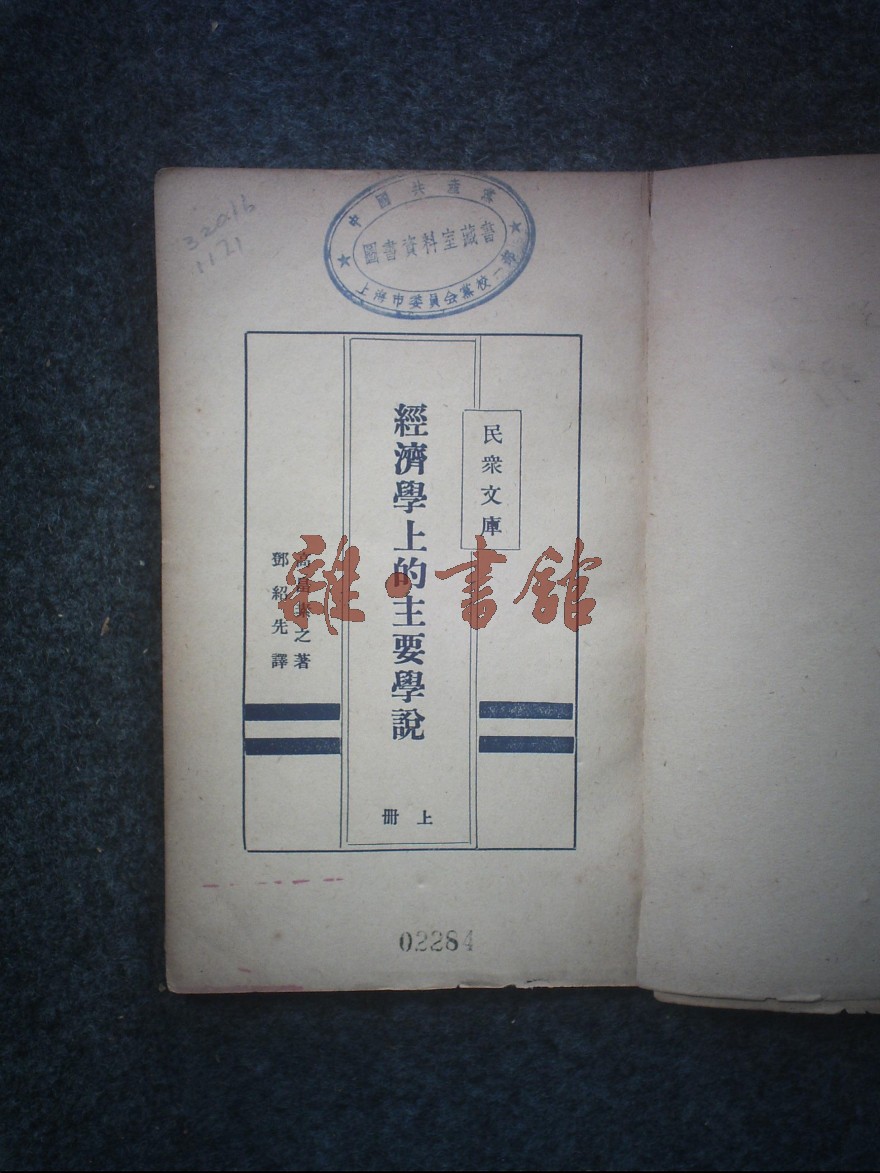 320.16
1121
中國共產黨
圖書資料室藏書
上海市委員会黨校一部
民衆文庫
經濟學上的主要學說
上冊
高畠素之著
鄧紹先譯
雜·書館
02284